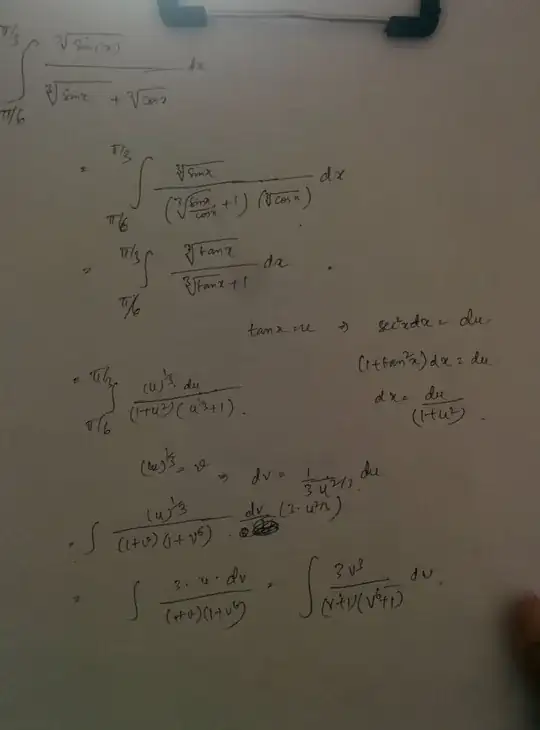 ∫_{π/6}^{π/3} ∛(sin(x)) / (∛(sinx) + ∛(cosx)) dx
= ∫_{π/6}^{π/3} ∛(sinx) / ((∛(sinx/cosx) + 1)(∛(cosx))) dx
= ∫_{π/6}^{π/3} ∛(tanx) / (∛(tanx) + 1) dx
tanx = u ⇒ sec²x dx = du
(1+tan²x) dx = du
dx = du/(1+u²)
= ∫_{π/6}^{π/3} (u)^{1/3} · du / ((1+u²)(u^{1/3}+1))
(u)^{1/3} = v ⇒ dv = 1/(3u^{2/3}) du
= ∫ (u)^{1/3} / ((1+v)(1+v⁶)) · dv (3·u^{2/3})
= ∫ 3·u·dv / ((1+v)(1+v⁶)) = ∫ 3v³ / ((v+1)(v⁶+1)) dv